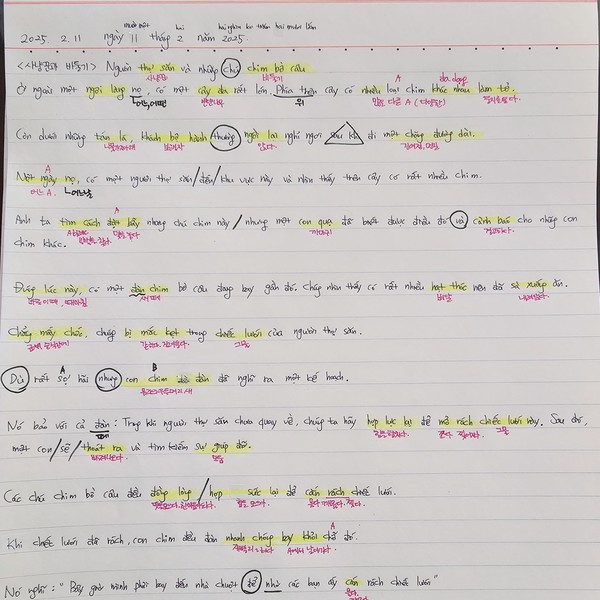 mười một hai hai nghìn ko trăm hai mươi lăm
2025. 2. 11 ngày 11 tháng 2 năm 2025.
<사냥꾼과 비둘기> Người thợ săn và những chú chim bồ câu
사냥꾼 비둘기
Ở ngoài một ngôi làng nọ, có một cây đa rất lớn. Phía trên cây có nhiều loại chim khác nhau làm tổ.
어느, 어떤 위 A 다양
Còn dưới những tán lá, khách bộ hành thường ngồi lại nghỉ ngơi sau khi đi một chặng đường dài.
앉다.
Một ngày nọ, có một người thợ săn / đến / khu vực này và nhìn thấy trên cây có rất nhiều chim.
A 어느 A. 어느날
Anh ta tìm cách đặt bẫy nhóm chú chim này / nhưng một con quạ đã biết được điều đó và cảnh báo cho những con
까마귀 경고하다.
chim khác.
Đúng lúc này, có một đàn chim bồ câu đang bay gần đó. Chúng nhìn thấy có rất nhiều hạt thóc nên đã sà xuống ăn.
바로 이때, 새떼
Chẳng mấy chốc, chúng bị mắc kẹt trong chiếc lưới của người thợ săn.
그물
Dù rất sợ hãi nhưng con chim đầu đàn đã nghĩ ra một kế hoạch.
A B
Nó bảo với cả đàn: Trong khi người thợ săn chưa quay về, chúng ta hãy hợp lực lại để mở rách chiếc lưới này. Sau đó,
그물
một con / sẽ / thoát ra và tìm kiếm sự giúp đỡ.
도움
Các chú chim bồ câu đều đồng lòng / hợp sức lại để cắn rách chiếc lưới.
Khi chiếc lưới đã rách, con chim đầu đàn nhanh chóng bay khỏi chỗ đó.
A
Nó nghĩ: "Bây giờ mình phải bay đến nhà chuột để nhờ các bạn ấy cắn rách chiếc lưới"